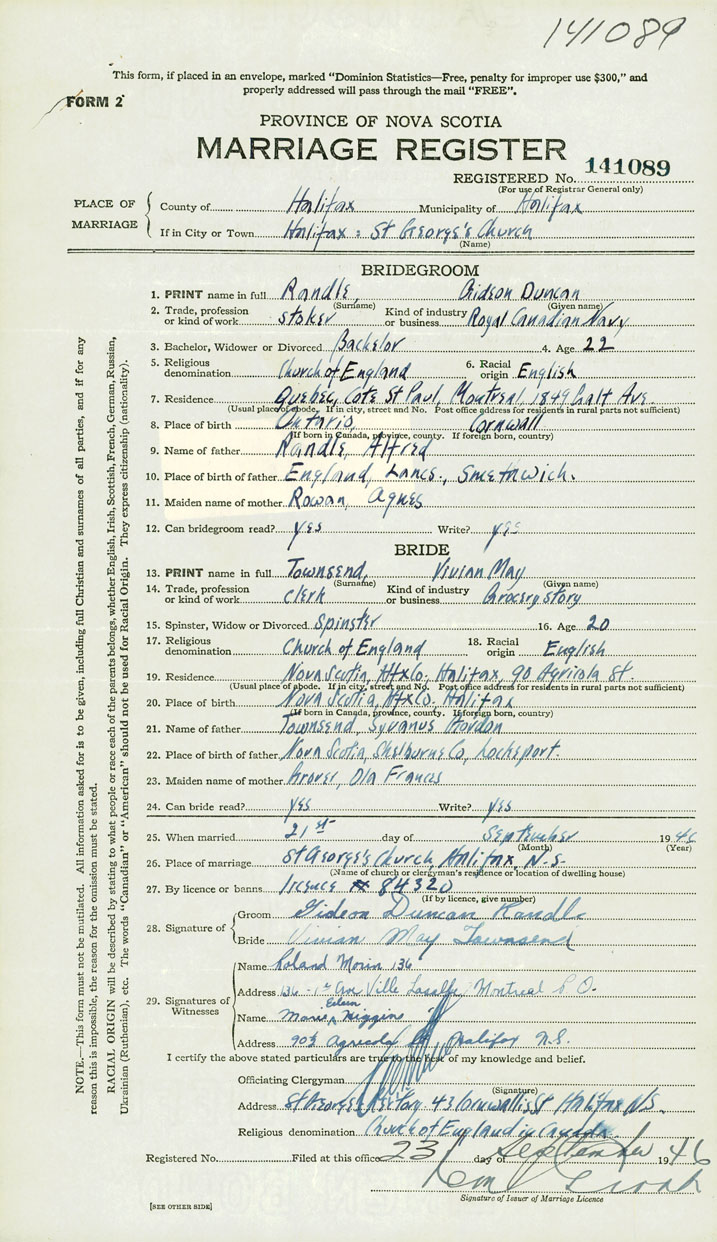 141089
This form, if placed in an envelope, marked “Dominion Statistics—Free, penalty for improper use $300,” and
properly addressed will pass through the mail “FREE”.
FORM 2
PROVINCE OF NOVA SCOTIA
MARRIAGE REGISTER
REGISTERED No. 141089
(For use of Registrar General only)
PLACE OF MARRIAGE
County of Halifax Municipality of Halifax
If in City or Town Halifax : St George's Church
(Name)
BRIDEGROOM
1. PRINT name in full Randle, Gideon Duncan
(Surname) (Given name)
2. Trade, profession or kind of work stoker Kind of industry or business Royal Canadian Navy
3. Bachelor, Widower or Divorced Bachelor 4. Age 22
5. Religious denomination Church of England 6. Racial origin English
7. Residence Quebec, Cote St Paul, Montreal, 1849 Galt Ave.
(Usual place of abode. If in city, street and No. Post office address for residents in rural parts not sufficient)
8. Place of birth Ontario, Cornwall
(If born in Canada, province, county. If foreign born, country)
9. Name of father Randle, Alfred
10. Place of birth of father England, Lancs., Smethwich.
11. Maiden name of mother Rowan, Agnes
12. Can bridegroom read? yes Write? yes
BRIDE
13. PRINT name in full Townsend, Vivian May
(Surname) (Given name)
14. Trade, profession or kind of work clerk Kind of industry or business Grocery story
15. Spinster, Widow or Divorced Spinster 16. Age 20
17. Religious denomination Church of England 18. Racial origin English
19. Residence Nova Scotia, Hfx Co, Halifax, 90 Agricola St.
(Usual place of abode. If in city, street and No. Post office address for residents in rural parts not sufficient)
20. Place of birth Nova Scotia, Hfx Co, Halifax
(If born in Canada, province, county. If foreign born, country)
21. Name of father Townsend, Syvanus Gordon
22. Place of birth of father Nova Scotia, Shelburne Co, Lockeport.
23. Maiden name of mother Grover, Ola Frances
24. Can bride read? yes Write? yes
25. When married 21st day of September 1946
(Month) (Year)
26. Place of marriage St George's Church, Halifax, N.S.
(Name of church or clergyman's residence or location of dwelling house)
27. By licence or banns licence # 84320
(If by licence, give number)
28. Signature of
Groom Gideon Duncan Randle
Bride Vivian May Townsend
29. Signatures of Witnesses
Name Roland Morin 136
Address 136 - 1st Ave Ville Lasalle, Montreal P.Q.
Eileen
Name Marie Higgins
Address 90½ Agricola St Halifax N.S.
I certify the above stated particulars are true to the best of my knowledge and belief.
Officiating Clergyman
(Signature)
Address St George's Rectory 43 Cornwallis St Halifax N.S.
Religious denomination Church of England in Canada
Registered No. Filed at this office 23 day of September 1946
Signature of Issuer of Marriage Licence
[SEE OTHER SIDE]
NOTE.—This form must not be mutilated. All information asked for is to be given, including full Christian and surnames of all parties, and if for any
reason this is impossible, the reason for the omission must be stated.
RACIAL ORIGIN will be described by stating to what people or race each of the parents belongs, whether English, Irish, Scottish, French, German, Russian,
Ukrainian (Ruthenian), etc. The words “Canadian” or “American” should not be used for Racial Origin. They express citizenship (nationality).